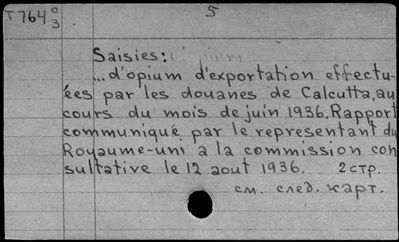 T764 0/3 5
Saisies:
...d'opium d'exportation effectu-
ées par les douanes de Calcutta, au
cours du mois de juin 1936. Rapport
communiqué par le representant du
Royaume-uni a la commission con
sultative le 12 aout 1936. 2 стр.
см. след. карт.